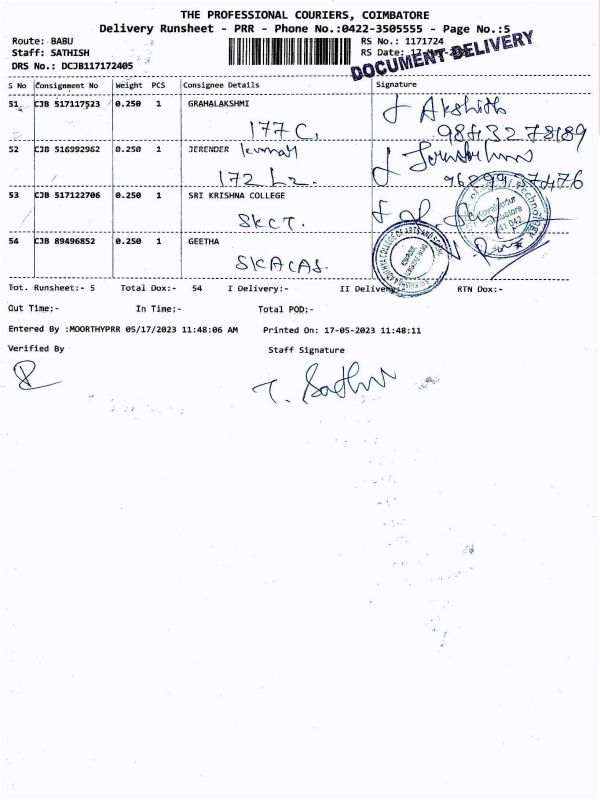 THE PROFESSIONAL COURIERS, COIMBATORE
Delivery Runsheet - PRR - Phone No.:0422-3505555 - Page No.:5
Route: BABU
RS No.: 1171724
Staff: SATHISH
RS Date:
DRS No.: DCJB117172405
DOCUMENT DELIVERY
S No Consignment No Weight PCS Consignee Details Signature
51 CJB 517117523 0.250 1 GRAHALAKSHMI
Akshith
177 C,
98432 78189
52 CJB 516992962 0.250 1 JERENDER kumar
172 L2.
53 CJB 517122706 0.250 1 SRI KRISHNA COLLEGE
SKCT.
54 CJB 89496852 0.250 1 GEETHA
SKACAS.
Tot. Runsheet:- 5 Total Dox:- 54 I Delivery:- II Delivery:- RTN Dox:-
Out Time:- In Time:- Total POD:-
Entered By :MOORTHYPRR 05/17/2023 11:48:06 AM Printed On: 17-05-2023 11:48:11
Verified By Staff Signature